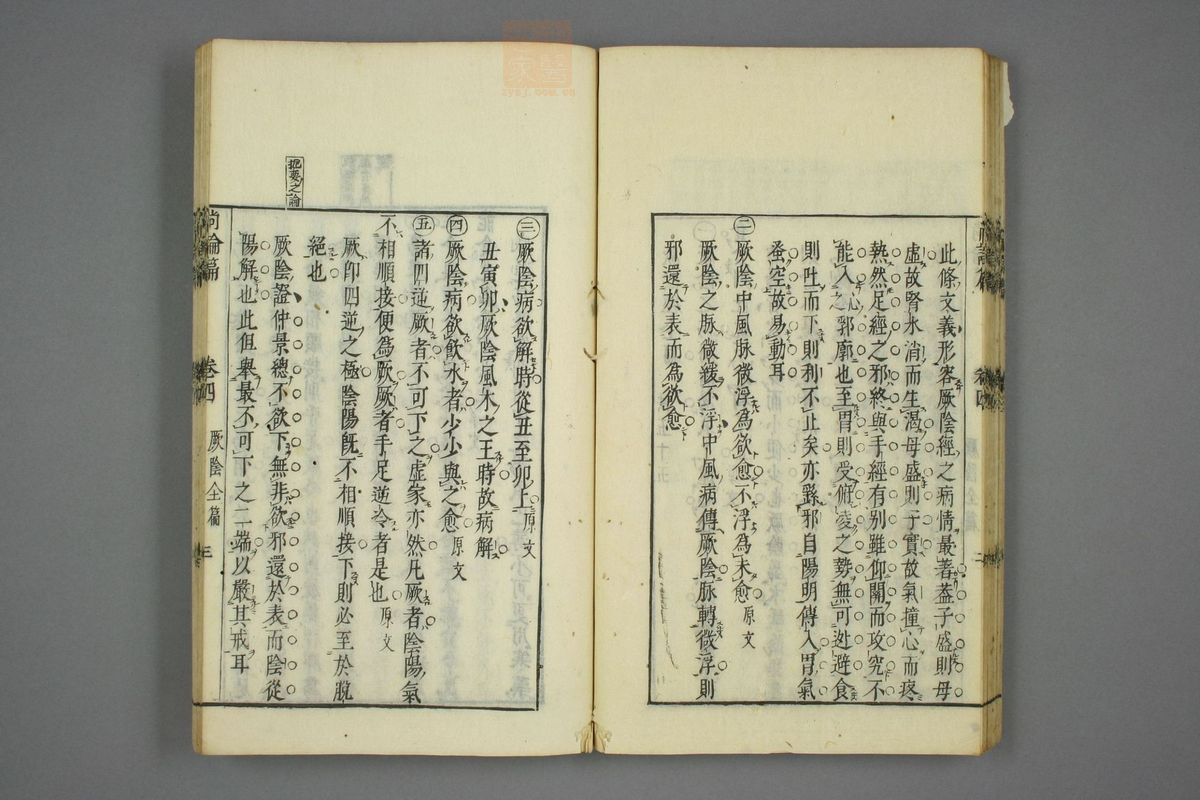 此條文義形容厥陰經之病情最著蓋子盛則母
虛故腎水消而生渴母盛則子實故氣撞心而疼
熱然足經之邪終與手經有別雖仰關而攻究不
能入心之郛廓也至胃則受俯凌之勢無可迯避食
則吐而下則利不止矣亦繇邪自陽明傳入胃氣
蚤空故易動耳
㊁厥陰中風脉微浮為欲愈不浮為未愈原文
厥陰之脉微緩不浮中風病傳厥陰脉轉微浮則
邪還於表而為欲愈
㊂厥陰病欲解時從丑至卯上原文
丑寅卯厥陰風木之王時故病解
㊃厥陰病欲飲水者少少與之愈原文
㊄諸四逆厥者不可下之虛家亦然凡厥者陰陽氣
不相順接便為厥厥者手足逆冷者是也原文
厥卽四逆之極陰陽旣不相順接下則必至於脫
絕也
厥陰證仲景總不欲下無非欲邪還於表而陰從
陽解也此但舉最不可下之二端以嚴其戒耳
扼要之論
尚論篇 卷四 厥陰全篇 三
zysj.com.cn